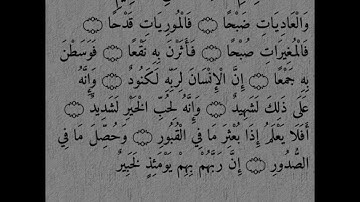 وَالْعَادِيَاتِ ضَبْحًا ۝ فَالْمُورِيَاتِ قَدْحًا ۝
فَالْمُغِيرَاتِ صُبْحًا ۝ فَأَثَرْنَ بِهِ نَقْعًا ۝ فَوَسَطْنَ
بِهِ جَمْعًا ۝ إِنَّ الْإِنْسَانَ لِرَبِّهِ لَكَنُودٌ ۝ وَإِنَّهُ
عَلَى ذَلِكَ لَشَهِيدٌ ۝ وَإِنَّهُ لِحُبِّ الْخَيْرِ لَشَدِيدٌ ۝
أَفَلَا يَعْلَمُ إِذَا بُعْثِرَ مَا فِي الْقُبُورِ ۝ وَحُصِّلَ مَا فِي
الصُّدُورِ ۝ إِنَّ رَبَّهُمْ بِهِمْ يَوْمَئِذٍ لَخَبِيرٌ